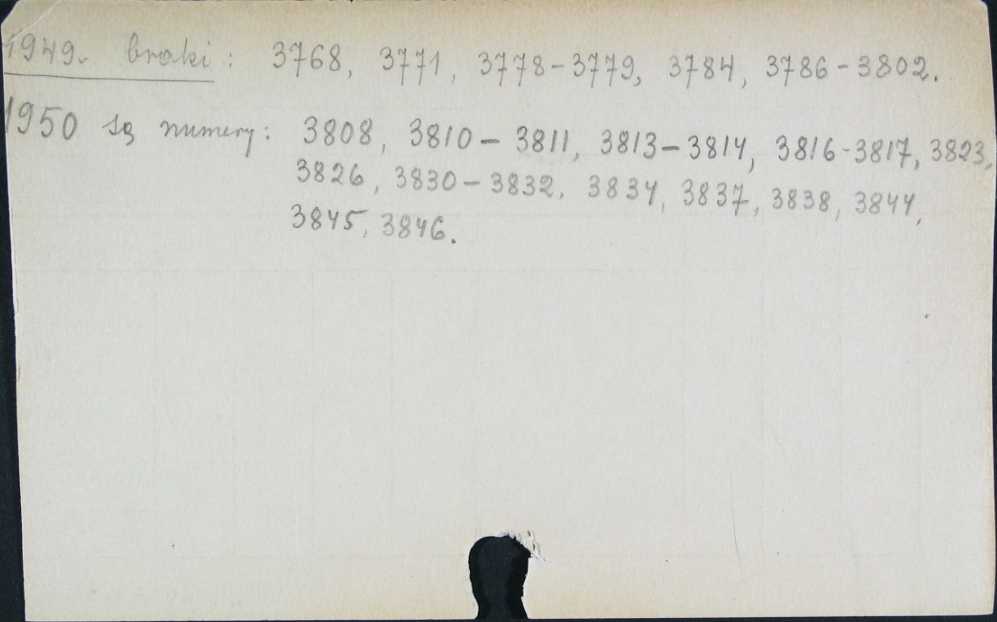 1949. braki: 3768, 3771, 3778-3779, 3784, 3786-3802.
1950 są numery: 3808, 3810-3811, 3813-3814, 3816-3817, 3823,
3826, 3830-3832, 3834, 3837, 3838, 3844,
3845, 3846.